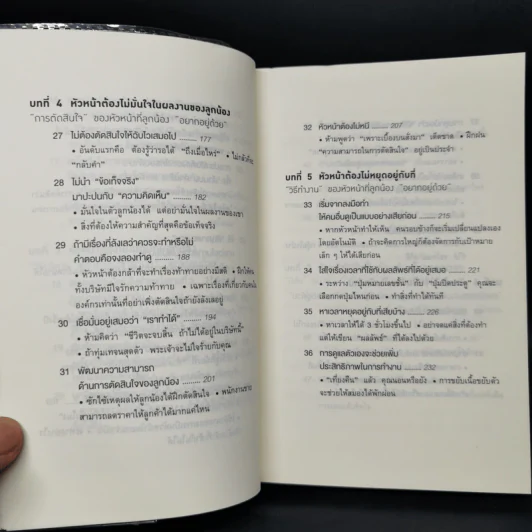 บทที่ 4 หัวหน้าต้องไม่มั่นใจในผลงานของลูกน้อง
"การตัดสินใจ" ของหัวหน้าที่ลูกน้อง "อยากอยู่ด้วย"
27 ไม่ต้องตัดสินใจให้ฉับไวเสมอไป ......... 177
• อันดับแรกคือ ต้องรู้ว่ารอได้ "ถึงเมื่อไหร่" •
"กลับคำ"
28 ไม่นำ "ข้อเท็จจริง"
มาปะปนกับ "ความคิดเห็น" ......... 182
• มั่นใจในตัวลูกน้องได้ แต่อย่ามั่นใจในผลงานของเขา
• สิ่งที่ต้องให้ความสำคัญที่สุดคือข้อเท็จจริง
29 ถ้ามีเรื่องที่ลังเลว่าควรจะทำหรือไม่
คำตอบคือจงลองทำดู ......... 188
• หัวหน้าต้องกล้าที่จะทำเรื่องท้าทายอย่างมีสติ • ฝึกให้คน
ทั้งบริษัทมีใจรักความท้าทาย • เฉพาะเรื่องที่เกี่ยวกับคน
องค์กรเท่านั้นที่อย่าเพิ่งตัดสินใจถ้ายังลังเลอยู่
30 เชื่อมั่นอยู่เสมอว่า "เราทำได้" ......... 194
• ห้ามคิดว่า "ชีวิตจะจบสิ้น ถ้าไม่ได้อยู่ในบริษัทนี้" •
ถ้าทุ่มเทจนสุดตัว พระเจ้าจะไม่ใจร้ายกับคุณ
31 พัฒนาความสามารถ
ด้านการตัดสินใจของลูกน้อง ......... 201
• ซักไซ้เหตุผลให้ลูกน้องได้ฝึกตัดสินใจ • พนักงานขาย
สามารถลดราคาให้ลูกค้าได้มากแค่ไหน
32 หัวหน้าต้องไม่หนี ......... 207
• ห้ามพูดว่า "เพราะเบื้องบนสั่งมา" เด็ดขาด • ฝึกฝน
"ความสามารถในการตัดสินใจ" อยู่เป็นประจำ
บทที่ 5 หัวหน้าต้องไม่หยุดอยู่กับที่
"วิธีทำงาน" ของหัวหน้าที่ลูกน้อง "อยากอยู่ด้วย"
33 เริ่มจากลงมือทำ
ให้คนอื่นดูเป็นแบบอย่างเสียก่อน ......... 215
• หากหัวหน้าทำให้เห็น คนรอบข้างก็จะเริ่มเปลี่ยนแปลงเอง
โดยอัตโนมัติ • ถ้าจะคิดการใหญ่ก็ต้องจัดการกับเป้าหมาย
เล็ก ๆ ให้ได้เสียก่อน
34 ใส่ใจเรื่องเวลาที่ใช้กับผลลัพธ์ที่ได้อยู่เสมอ ......... 221
• ระหว่าง "ปุ่มหมายเลขชั้น" กับ "ปุ่มปิดประตู" คุณจะ
เลือกกดปุ่มไหนก่อน • ทำสิ่งที่ทำได้ทันที
35 หาเวลาหยุดอยู่กับที่เสียบ้าง ......... 227
• หาเวลาให้ได้ 3 ชั่วโมงขึ้นไป • อย่าจดแต่สิ่งที่ต้องทำ
แต่ให้เขียน "ผลลัพธ์" ที่ได้ลงไปด้วย
36 การดูแลตัวเองจะช่วยเพิ่ม
ประสิทธิภาพในการทำงาน ......... 232
• "เที่ยงคืน" แล้ว คุณนอนหรือยัง • การขยับเนื้อขยับตัว
จะช่วยให้สมองได้พักผ่อน